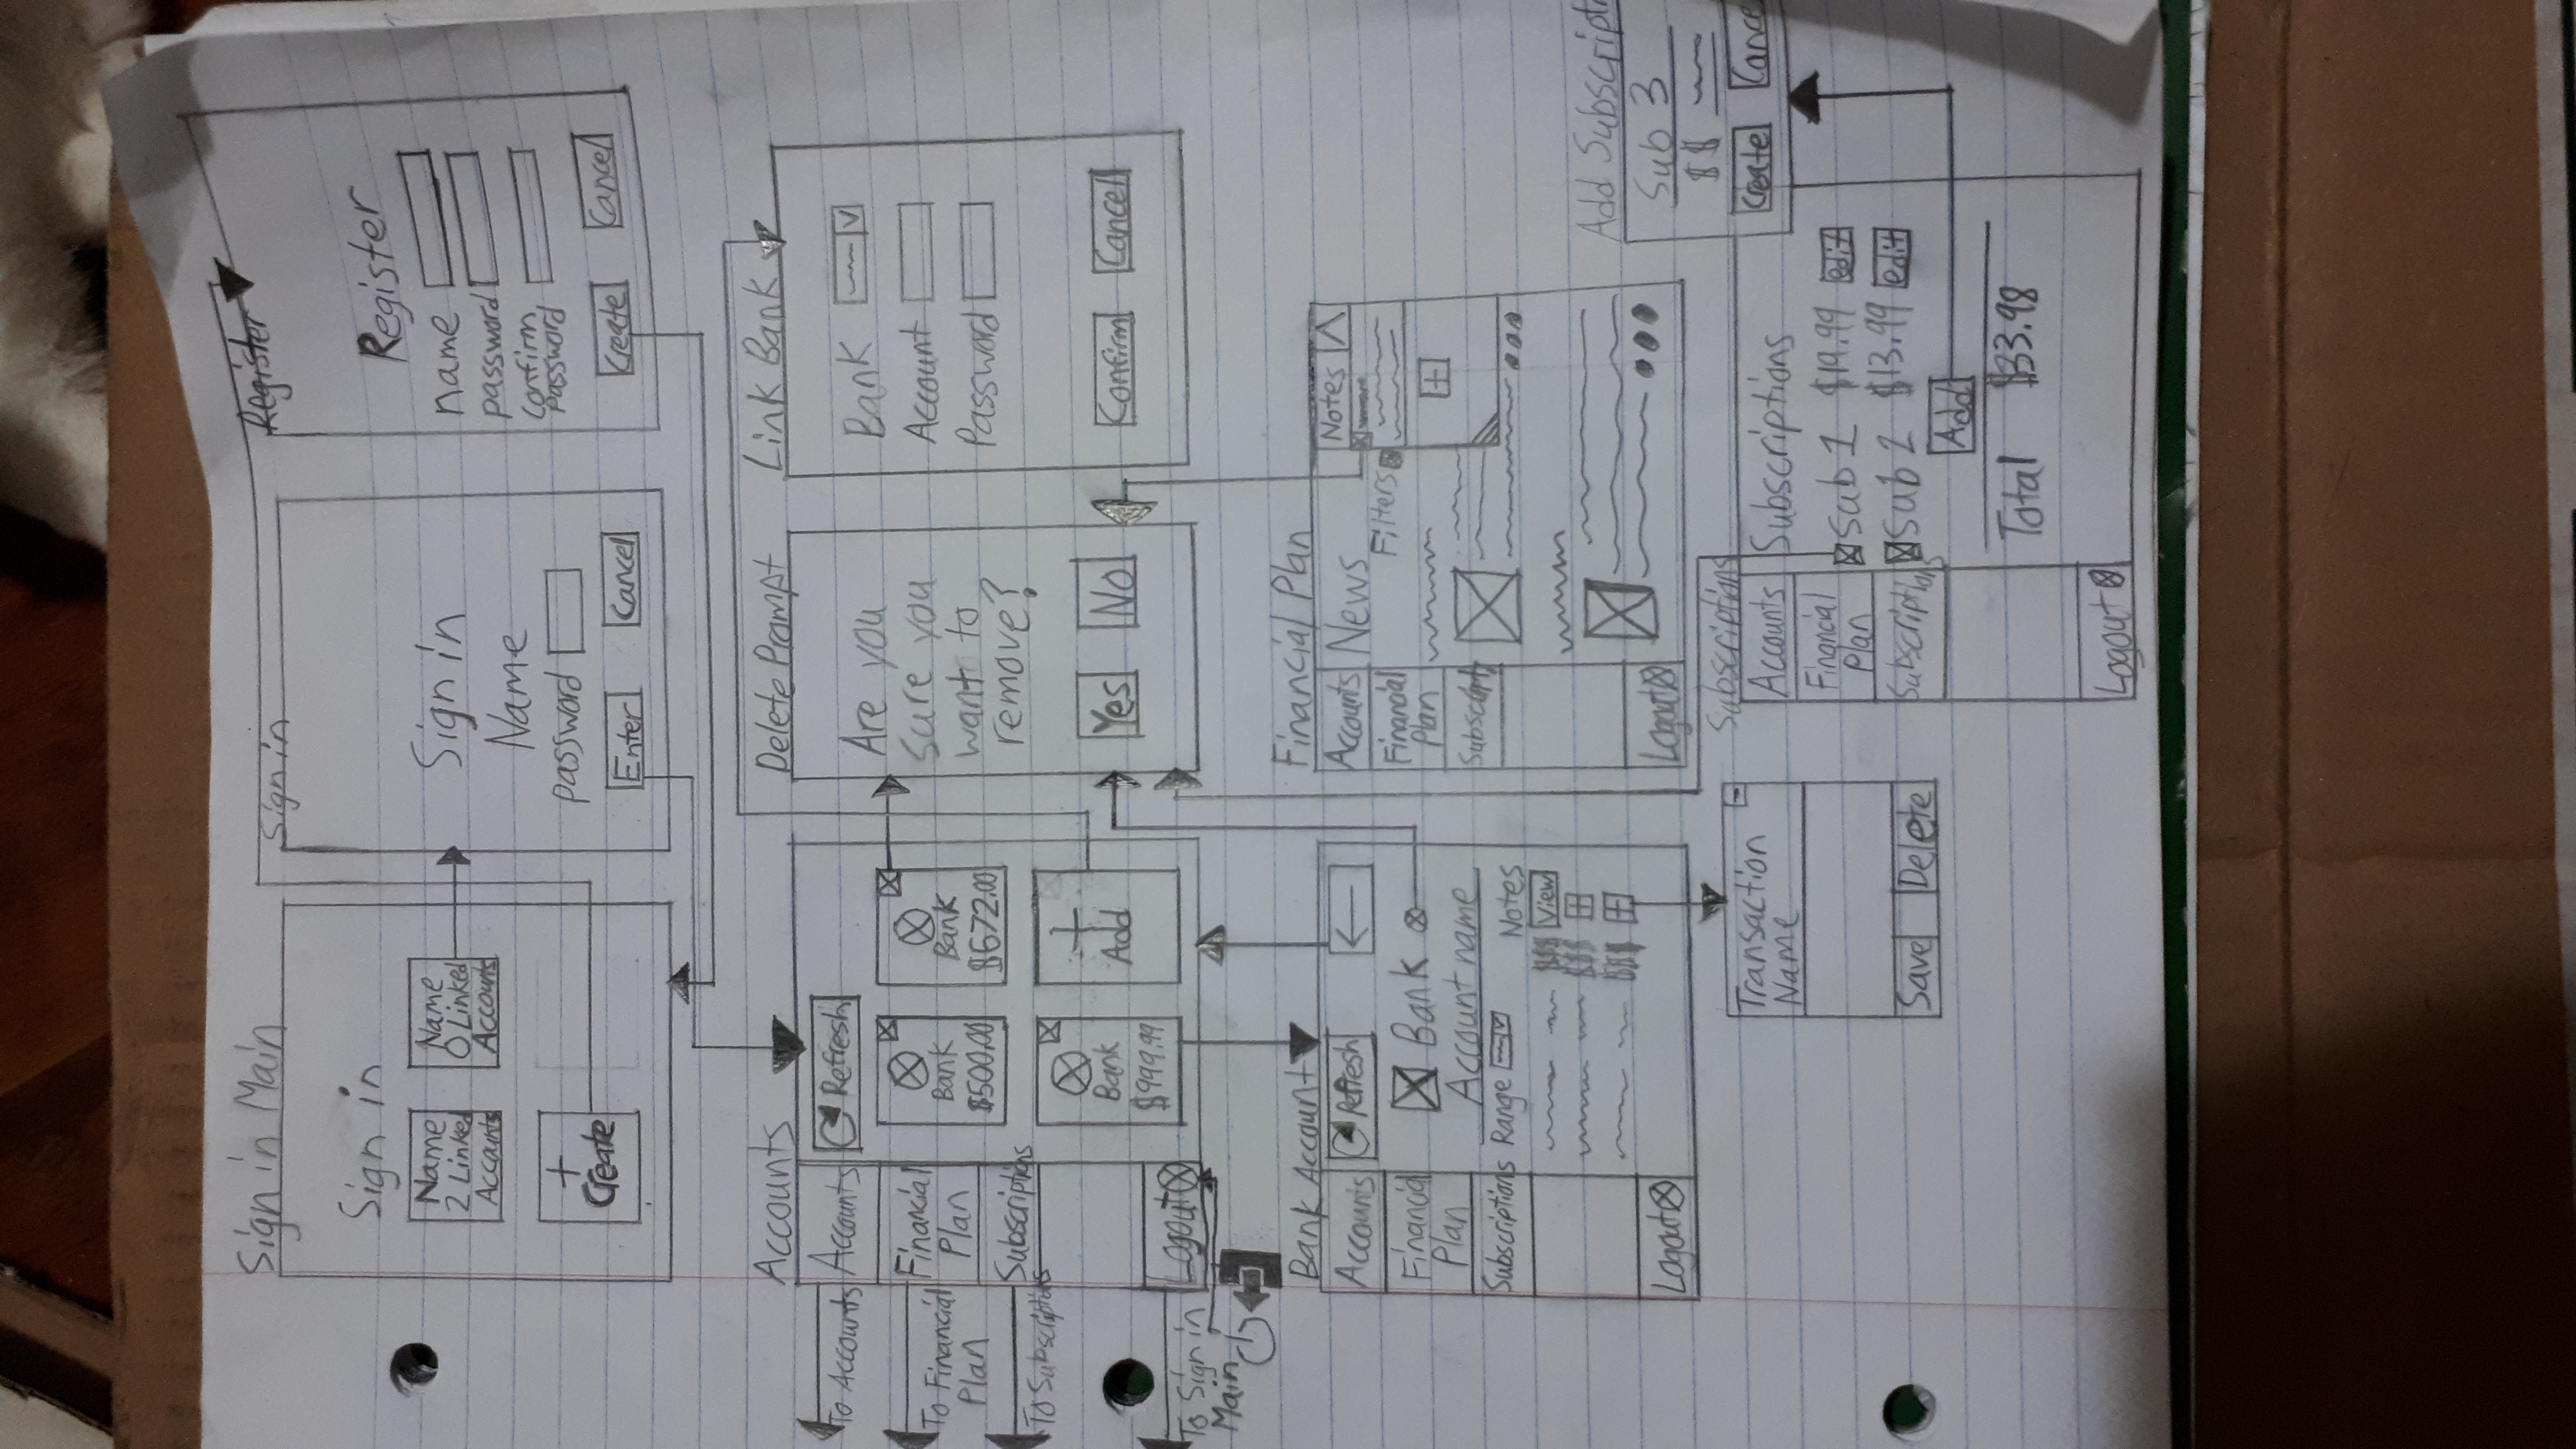 Sign in Main
Sign in
Name
2 Linked
Accounts
Name
0 Linked
Accounts
+
Create
Sign in
Sign in
Name
password
Enter
Cancel
Register
Register
name
password
Confirm
password
Create
Cancel
Accounts
To Accounts
To Financial
Plan
To Subscriptions
To Sign in
Main
Accounts
Financial
Plan
Subscriptions
Logout
Refresh
Bank
$500.00
Bank
$672.00
Bank
$999.99
+
Add
Delete Prompt
Are you
sure you
want to
remove?
Yes
No
Link Bank
Bank
Account
Password
Confirm
Cancel
Bank Account
Accounts
Financial
Plan
Subscriptions
Logout
Refresh
Bank
Account name
Range
Notes
$$$ View
$$$ +
$$$ +
Transaction
Name
Save
Delete
Financial Plan
Accounts
Financial
Plan
Subscript
Logout
News
Filters
Notes
+
Subscriptions
Accounts
Financial
Plan
Subscriptions
Logout
Subscriptions
Sub 1 $19.99 edit
Sub 2 $13.99 edit
Add
Total $33.98
Add Subscript
Sub 3
$$
Create
Cance